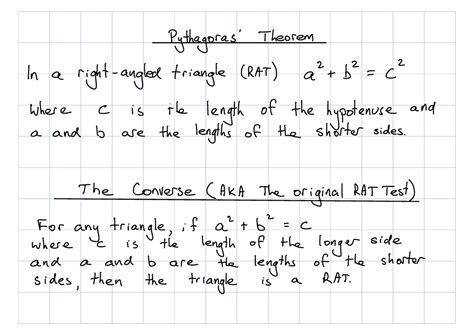 Pythagoras' Theorem
In a right-angled triangle (RAT) a² + b² = c²
where c is the length of the hypotenuse and
a and b are the lengths of the shorter sides.
The Converse (AKA The original RAT Test)
For any triangle, if a² + b² = c
where c is the length of the longer side
and a and b are the lengths of the shorter
sides, then the triangle is a RAT.